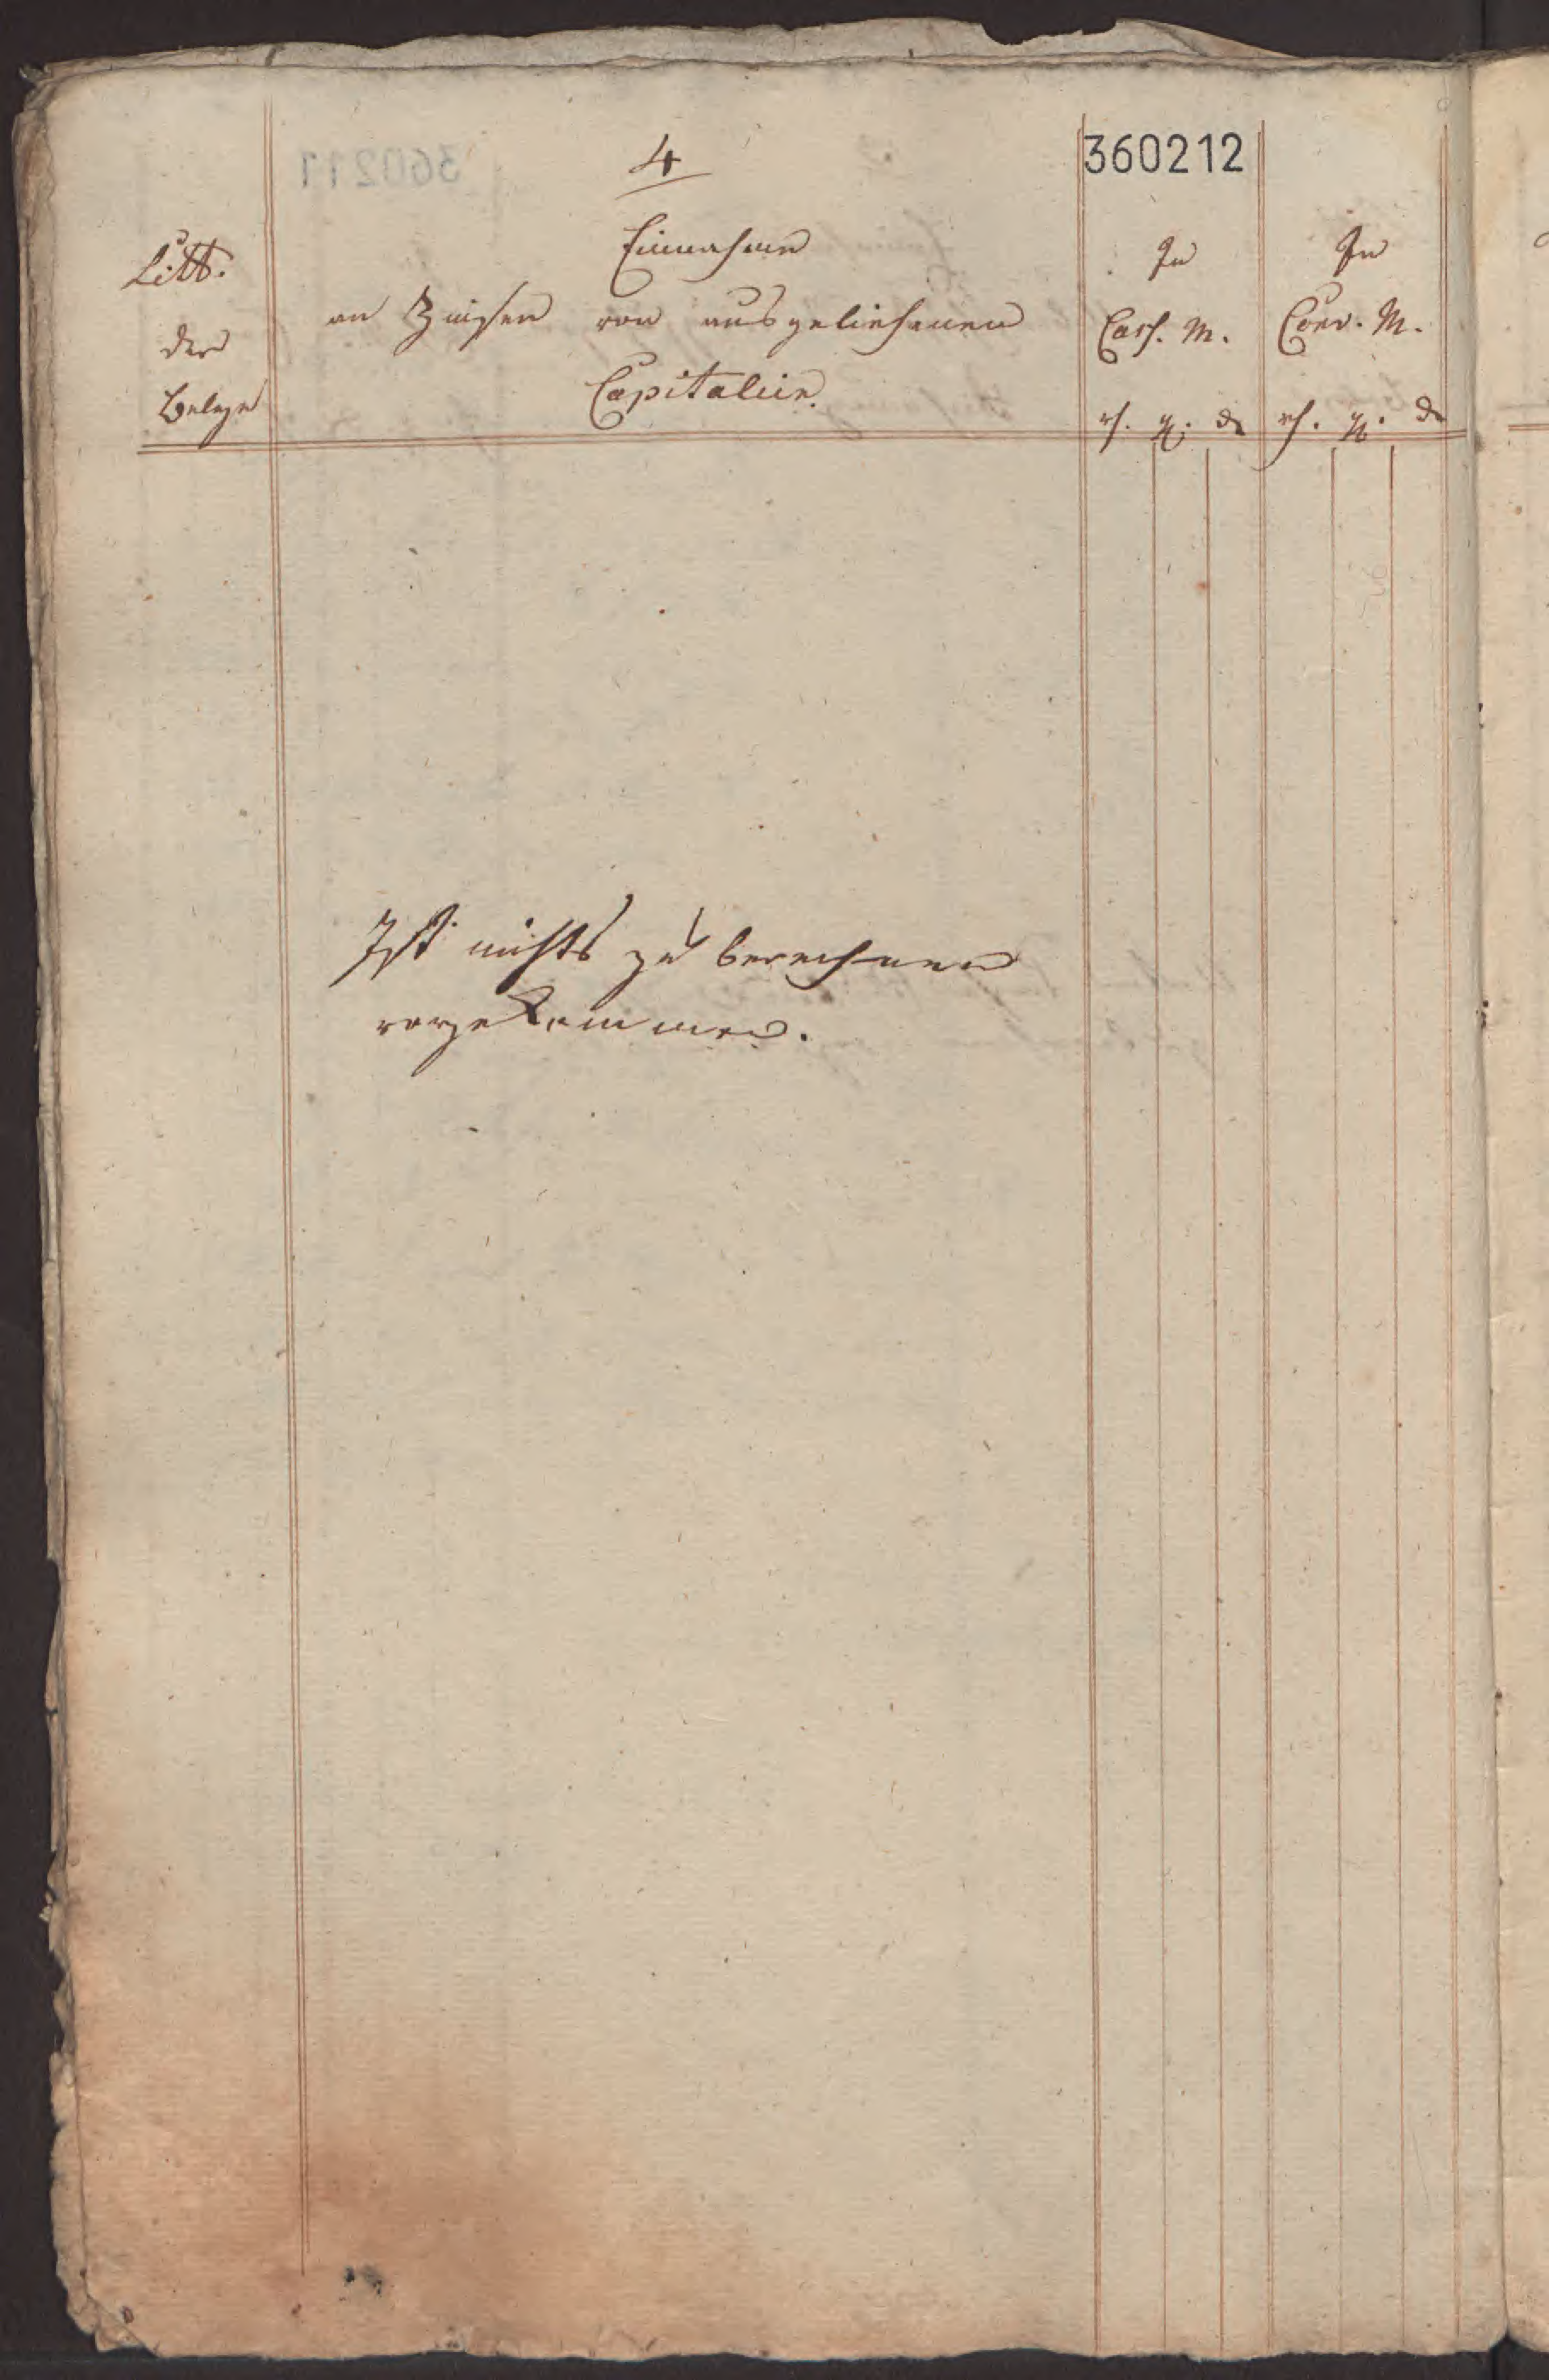 4
360212
Litt.
der
Belege
Einnahme
an Zinsen von ausgeliehenen
Capitalien.
In
Cass. M.
rh. g. d
In
Conv. M.
rh. g. d
Ist nichts zu berechnen
vorgekommen.